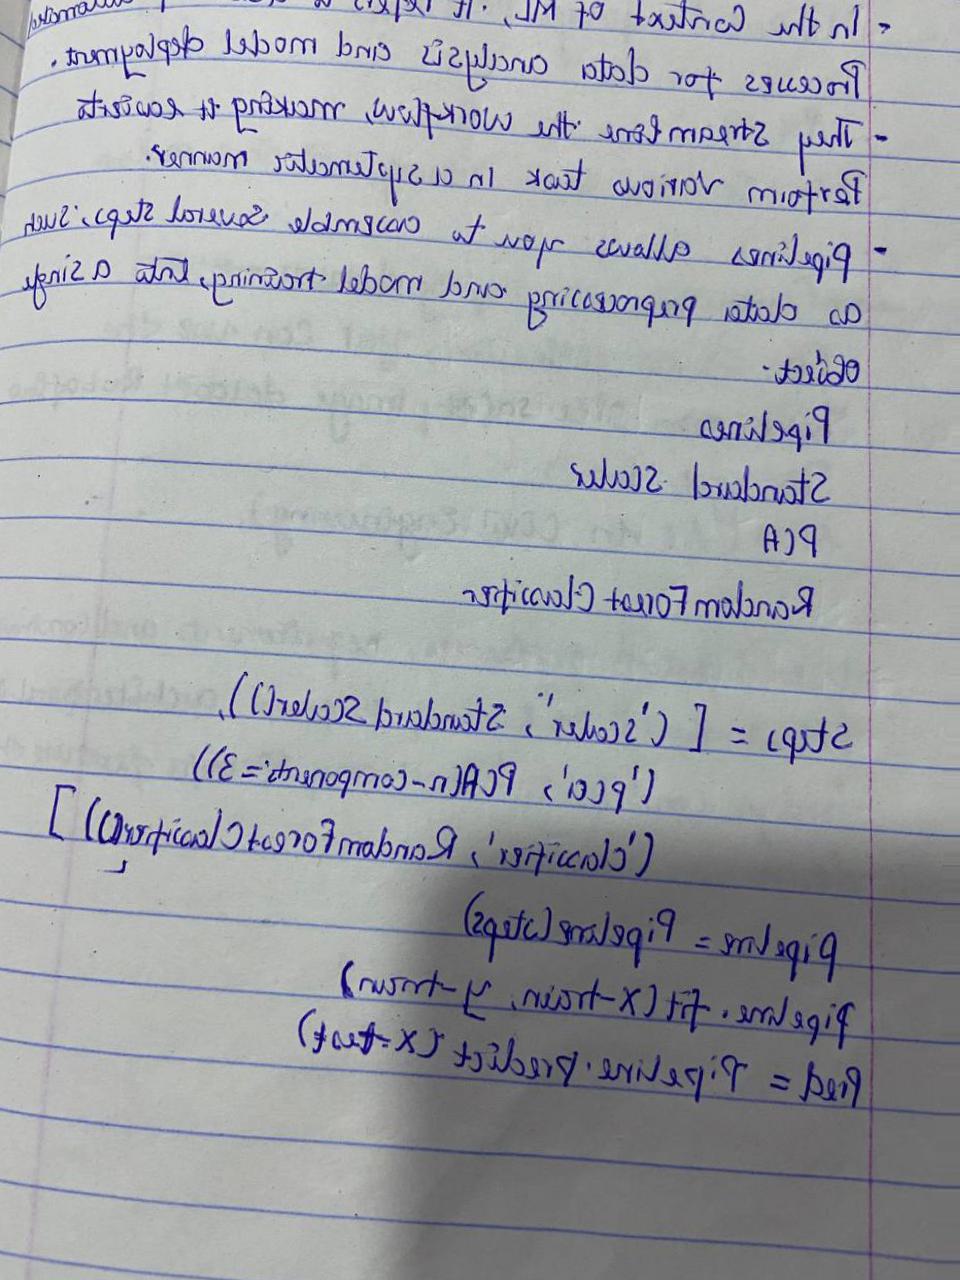 - In the Context of ML, it refers
Processes for data analysis and model deployment.
- They Streamline the workflow, making it easier to
Perform various task in a systematic manner.
- Pipelines allows you to assemble Several Steps, such
as data preprocessing and model training, into a single
object.
Pipelines
Standard Scaler
PCA
Random Forest Classifier
Steps = [('Scaler', Standard Scaler()),
('pca', PCA(n-components=3))
('classifier', Random Forest Classifier())]
Pipeline = Pipeline(steps)
Pipeline.fit(X-train, y-train)
Pred = Pipeline.predict(X-test)